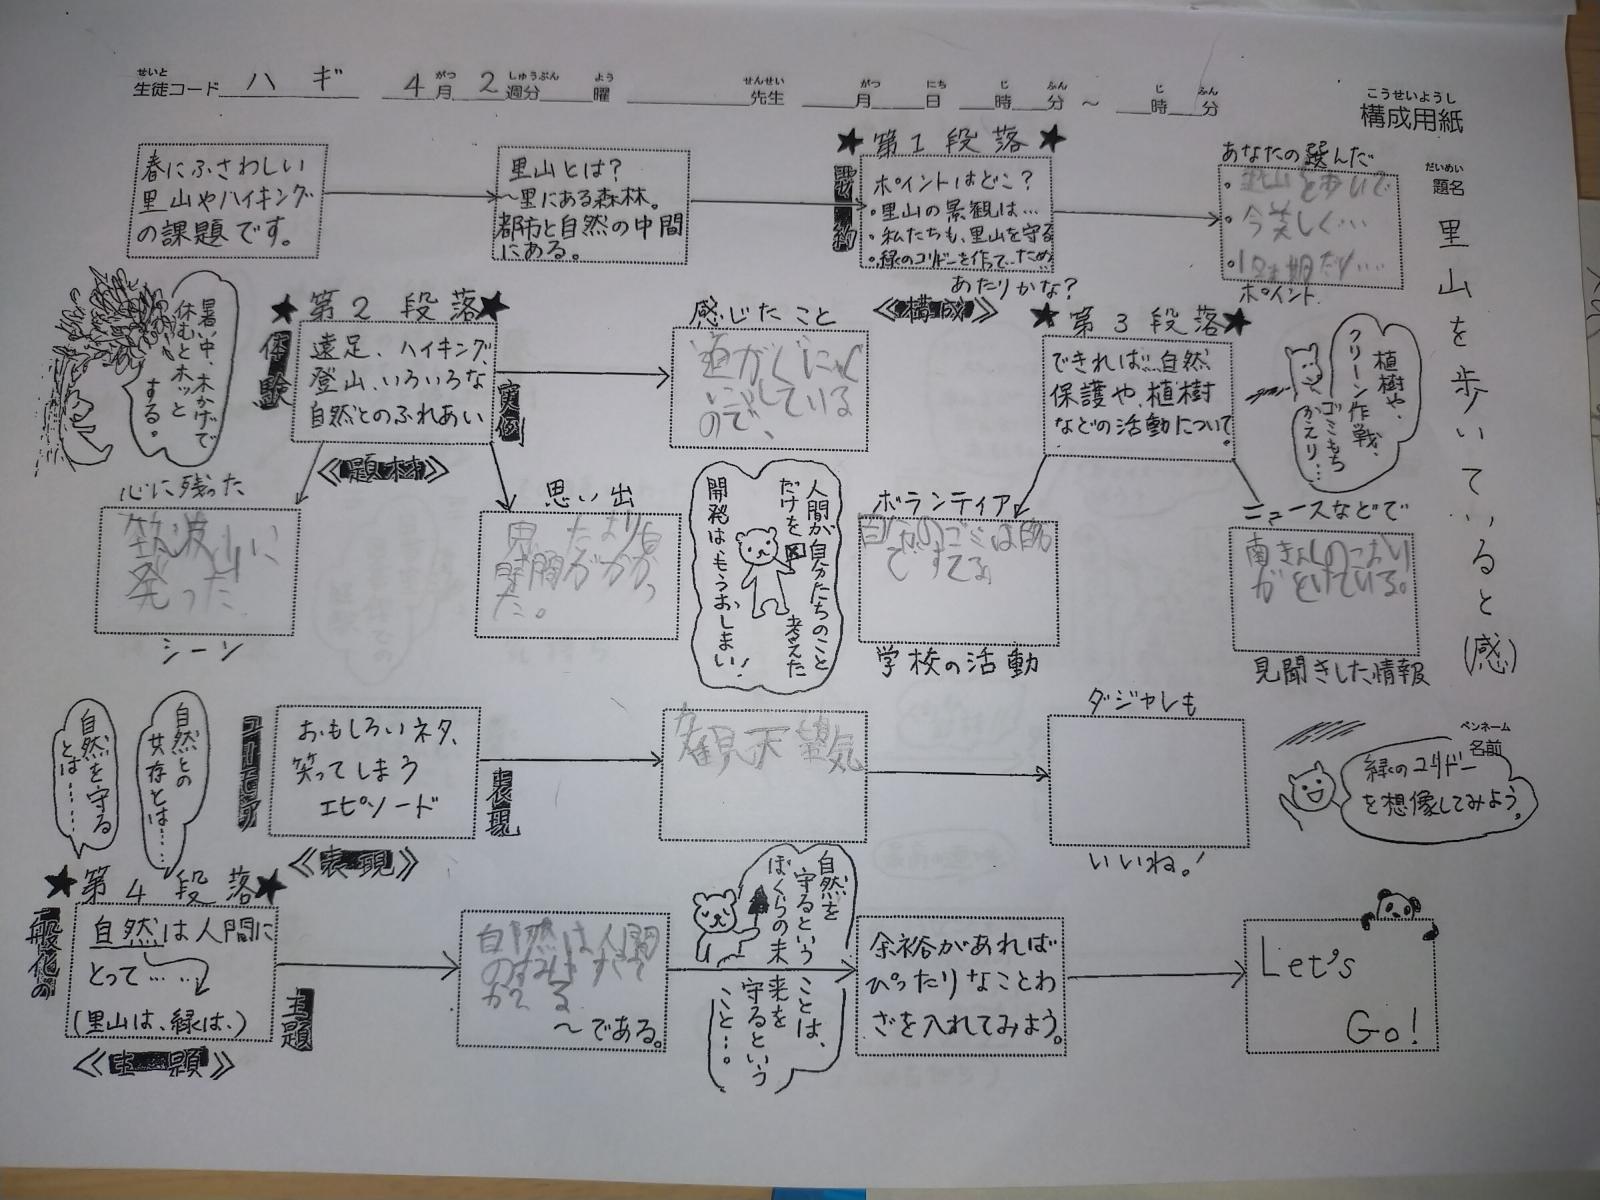 せいと がつ しゅうぶん よう せんせい がつ にち じ ふん じ ふん
生徒コード ハギ 4月 2週分 曜 先生 月 日 時 分 ~ 時 分
こうせいようし
構成用紙
だいめい
題名
里山を歩いていると(感)
ペンネーム
名前
春にふさわしい
里山やハイキング
の課題です。
里山とは?
~里にある森林。
都市と自然の中間
にある。
★第1段落★
要約
ポイントはどこ?
・里山の景観は…
・私たちも、里山を守る
・緑のコリドーを作って…ため
あたりかな?
《構成》
あなたの選んだ
・里山を歩いて
・今美しく…
ポイント
暑い中、木かげで
休むとホッと
する。
★第2段落★
体験
遠足、ハイキング、
登山、いろいろな
自然とのふれあい
実例
《題材》
感じたこと
道が
している
ので、
★第3段落★
できれば、自然
保護や、植樹
などの活動について。
植樹や、
クリーン作戦、
ゴミもち
かえり…
心に残った
筑波山に
シーン
思い出
た。
人間が自分たちのこと
だけを考えた
開発はもうおしまい!
ボランティア
自分のゴミは
ですてる。
学校の活動
ニュースなどで
南きょくのこおり
がとけている。
見聞きした情報
自然との
共存とは……
自然を守る
とは……
ユーモア
おもしろいネタ、
笑ってしまう
エピソード
表現
《表現》
観天望気
ダジャレも
いいね!
緑のコリドー
を想像してみよう。
★第4段落★
一般化の
自然は人間に
とって……
(里山は、緑は、)
主題
《主題》
自然は人間
~である。
自然を
守るという
ことは、
ぼくらの未
来を
守るという
こと…。
余裕があれば
ぴったりなことわ
ざを入れてみよう。
Let's
Go!